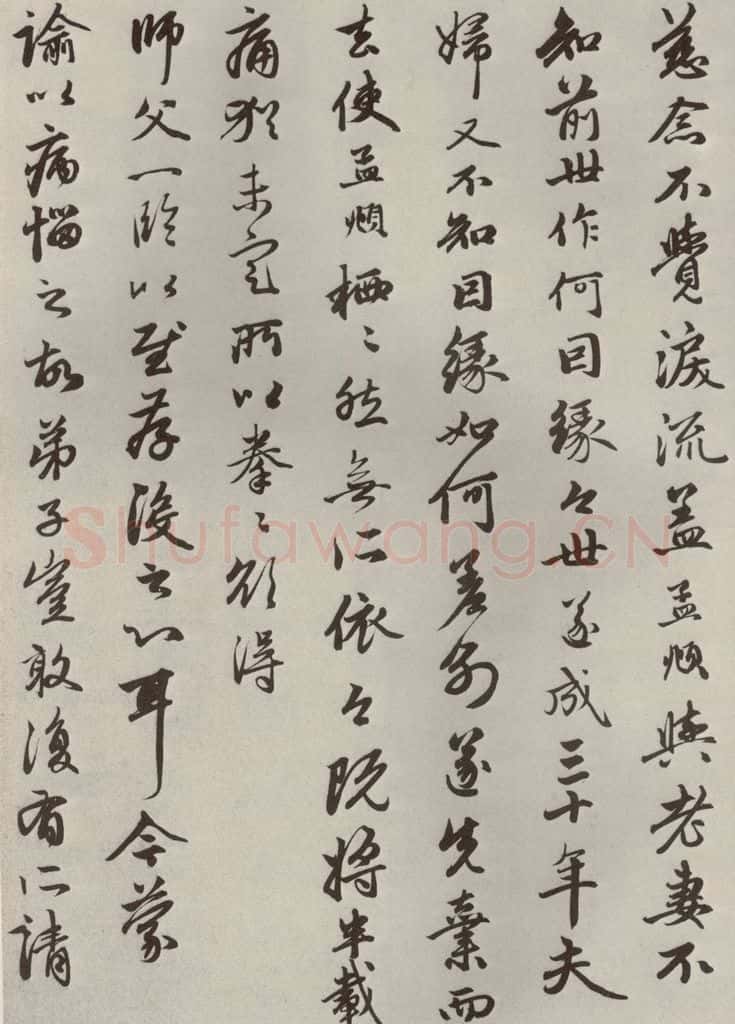 慈念不覺淚流盖孟頫與老妻不
知前世作何因緣今世遂成三十年夫
婦又不知因緣如何差別遂先棄而
去使孟頫栖〻然無所依今既將半載
痛猶未定所以拳〻欲得
師父一臨以慰存没之心耳今蒙
諭以病惱之故弟子豈敢復有所請
Shufawang.CN